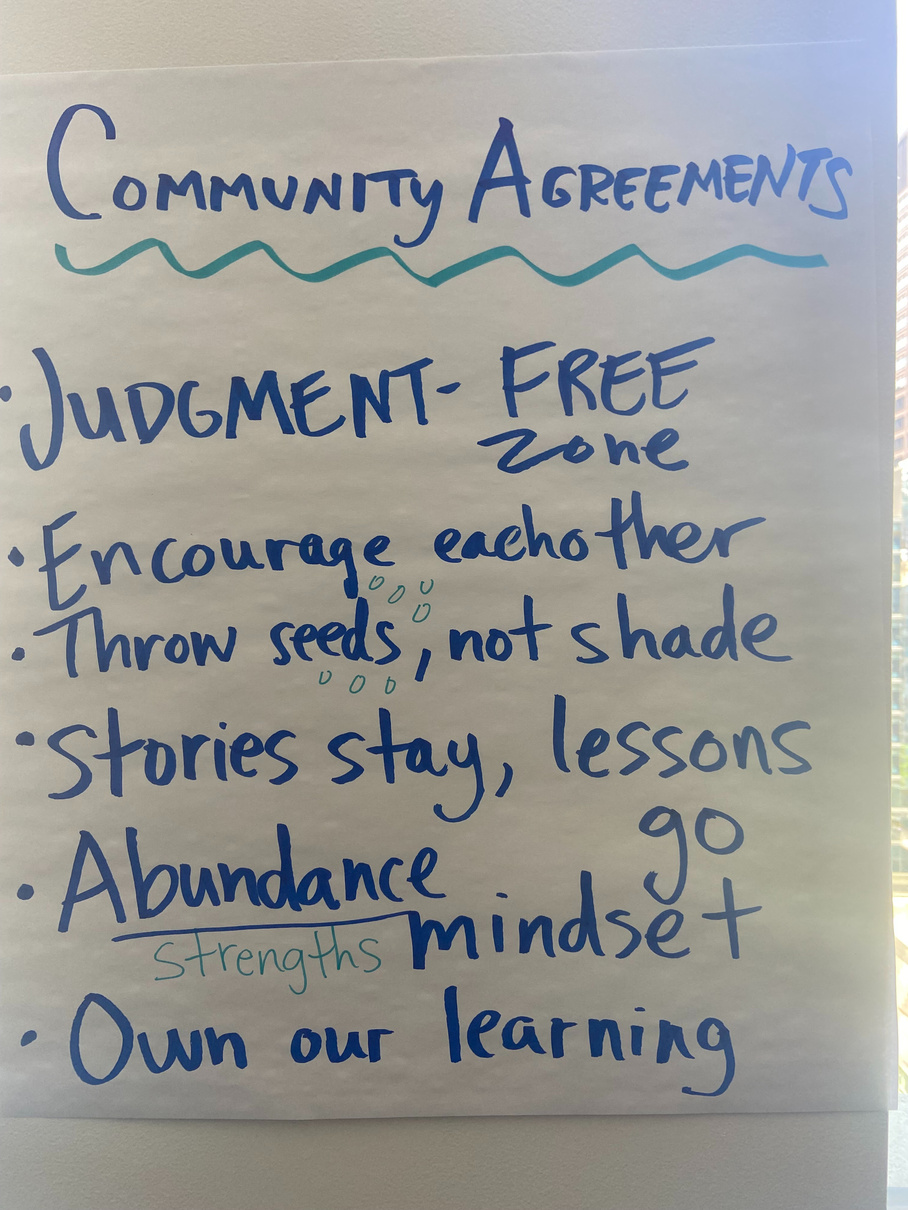 COMMUNITY AGREEMENTS
• JUDGMENT-FREE
zone
• Encourage eachother
• Throw seeds, not shade
• Stories stay, lessons
go
• Abundance
mindset
strengths
• Own our learning